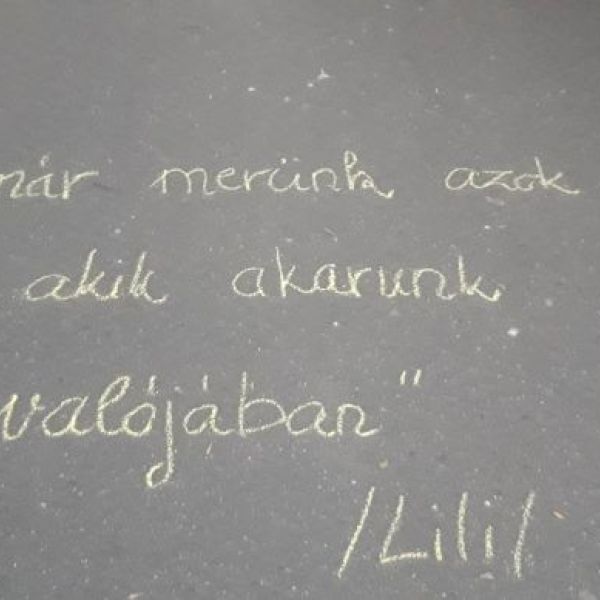 már merünk azok
akik akarunk
valójában"
/Lili/